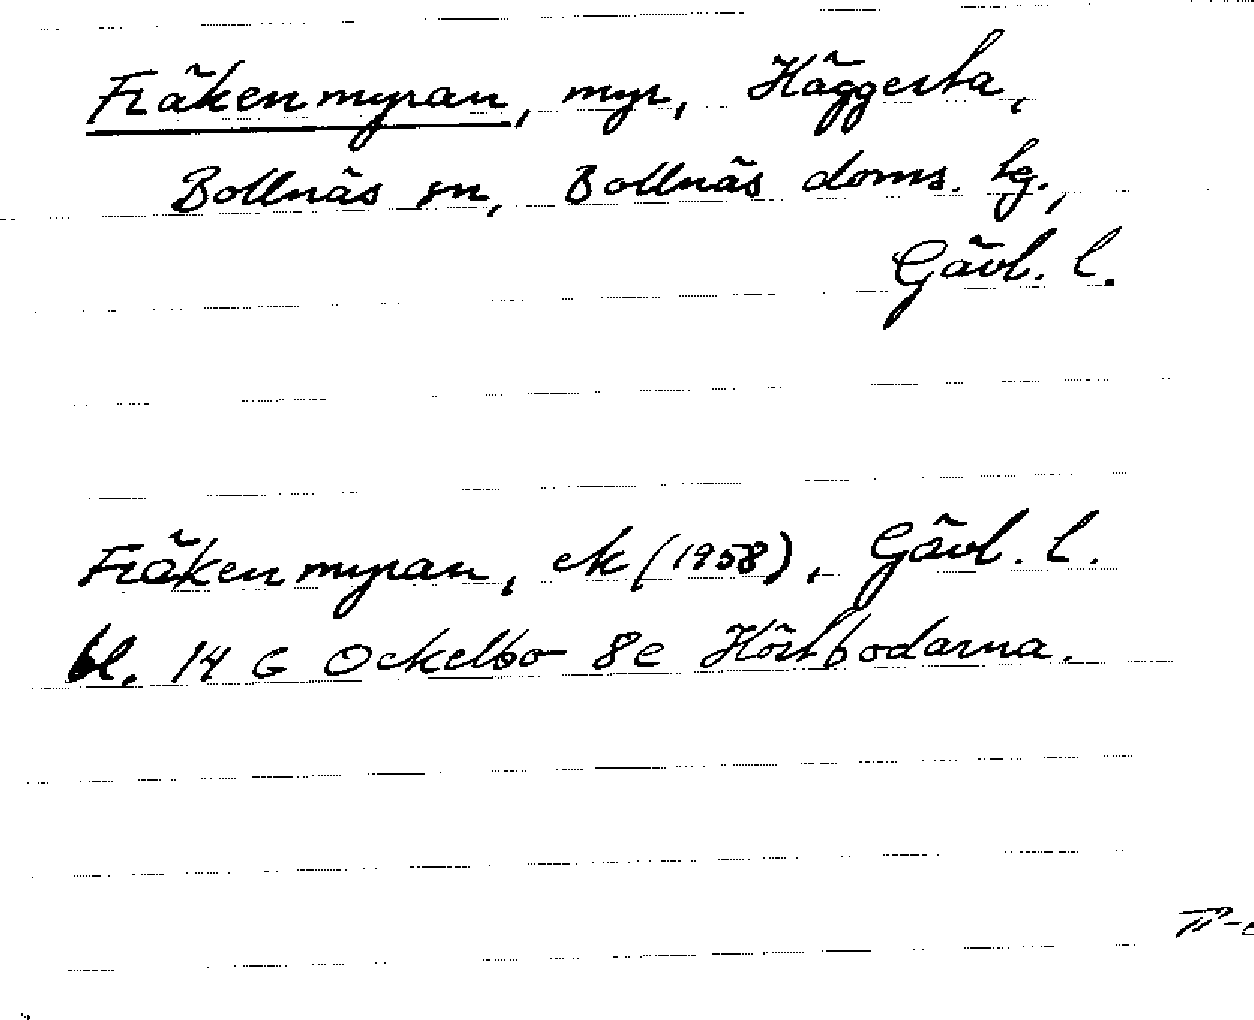 Fräkenmyran, myr, Häggesta,
Bollnäs sn, Bollnäs doms. hg.,
Gävl. l.
Fräkenmyran, ek (1958), Gävl. l.
bl. 14 G Ockelbo 8e Höstbodarna.